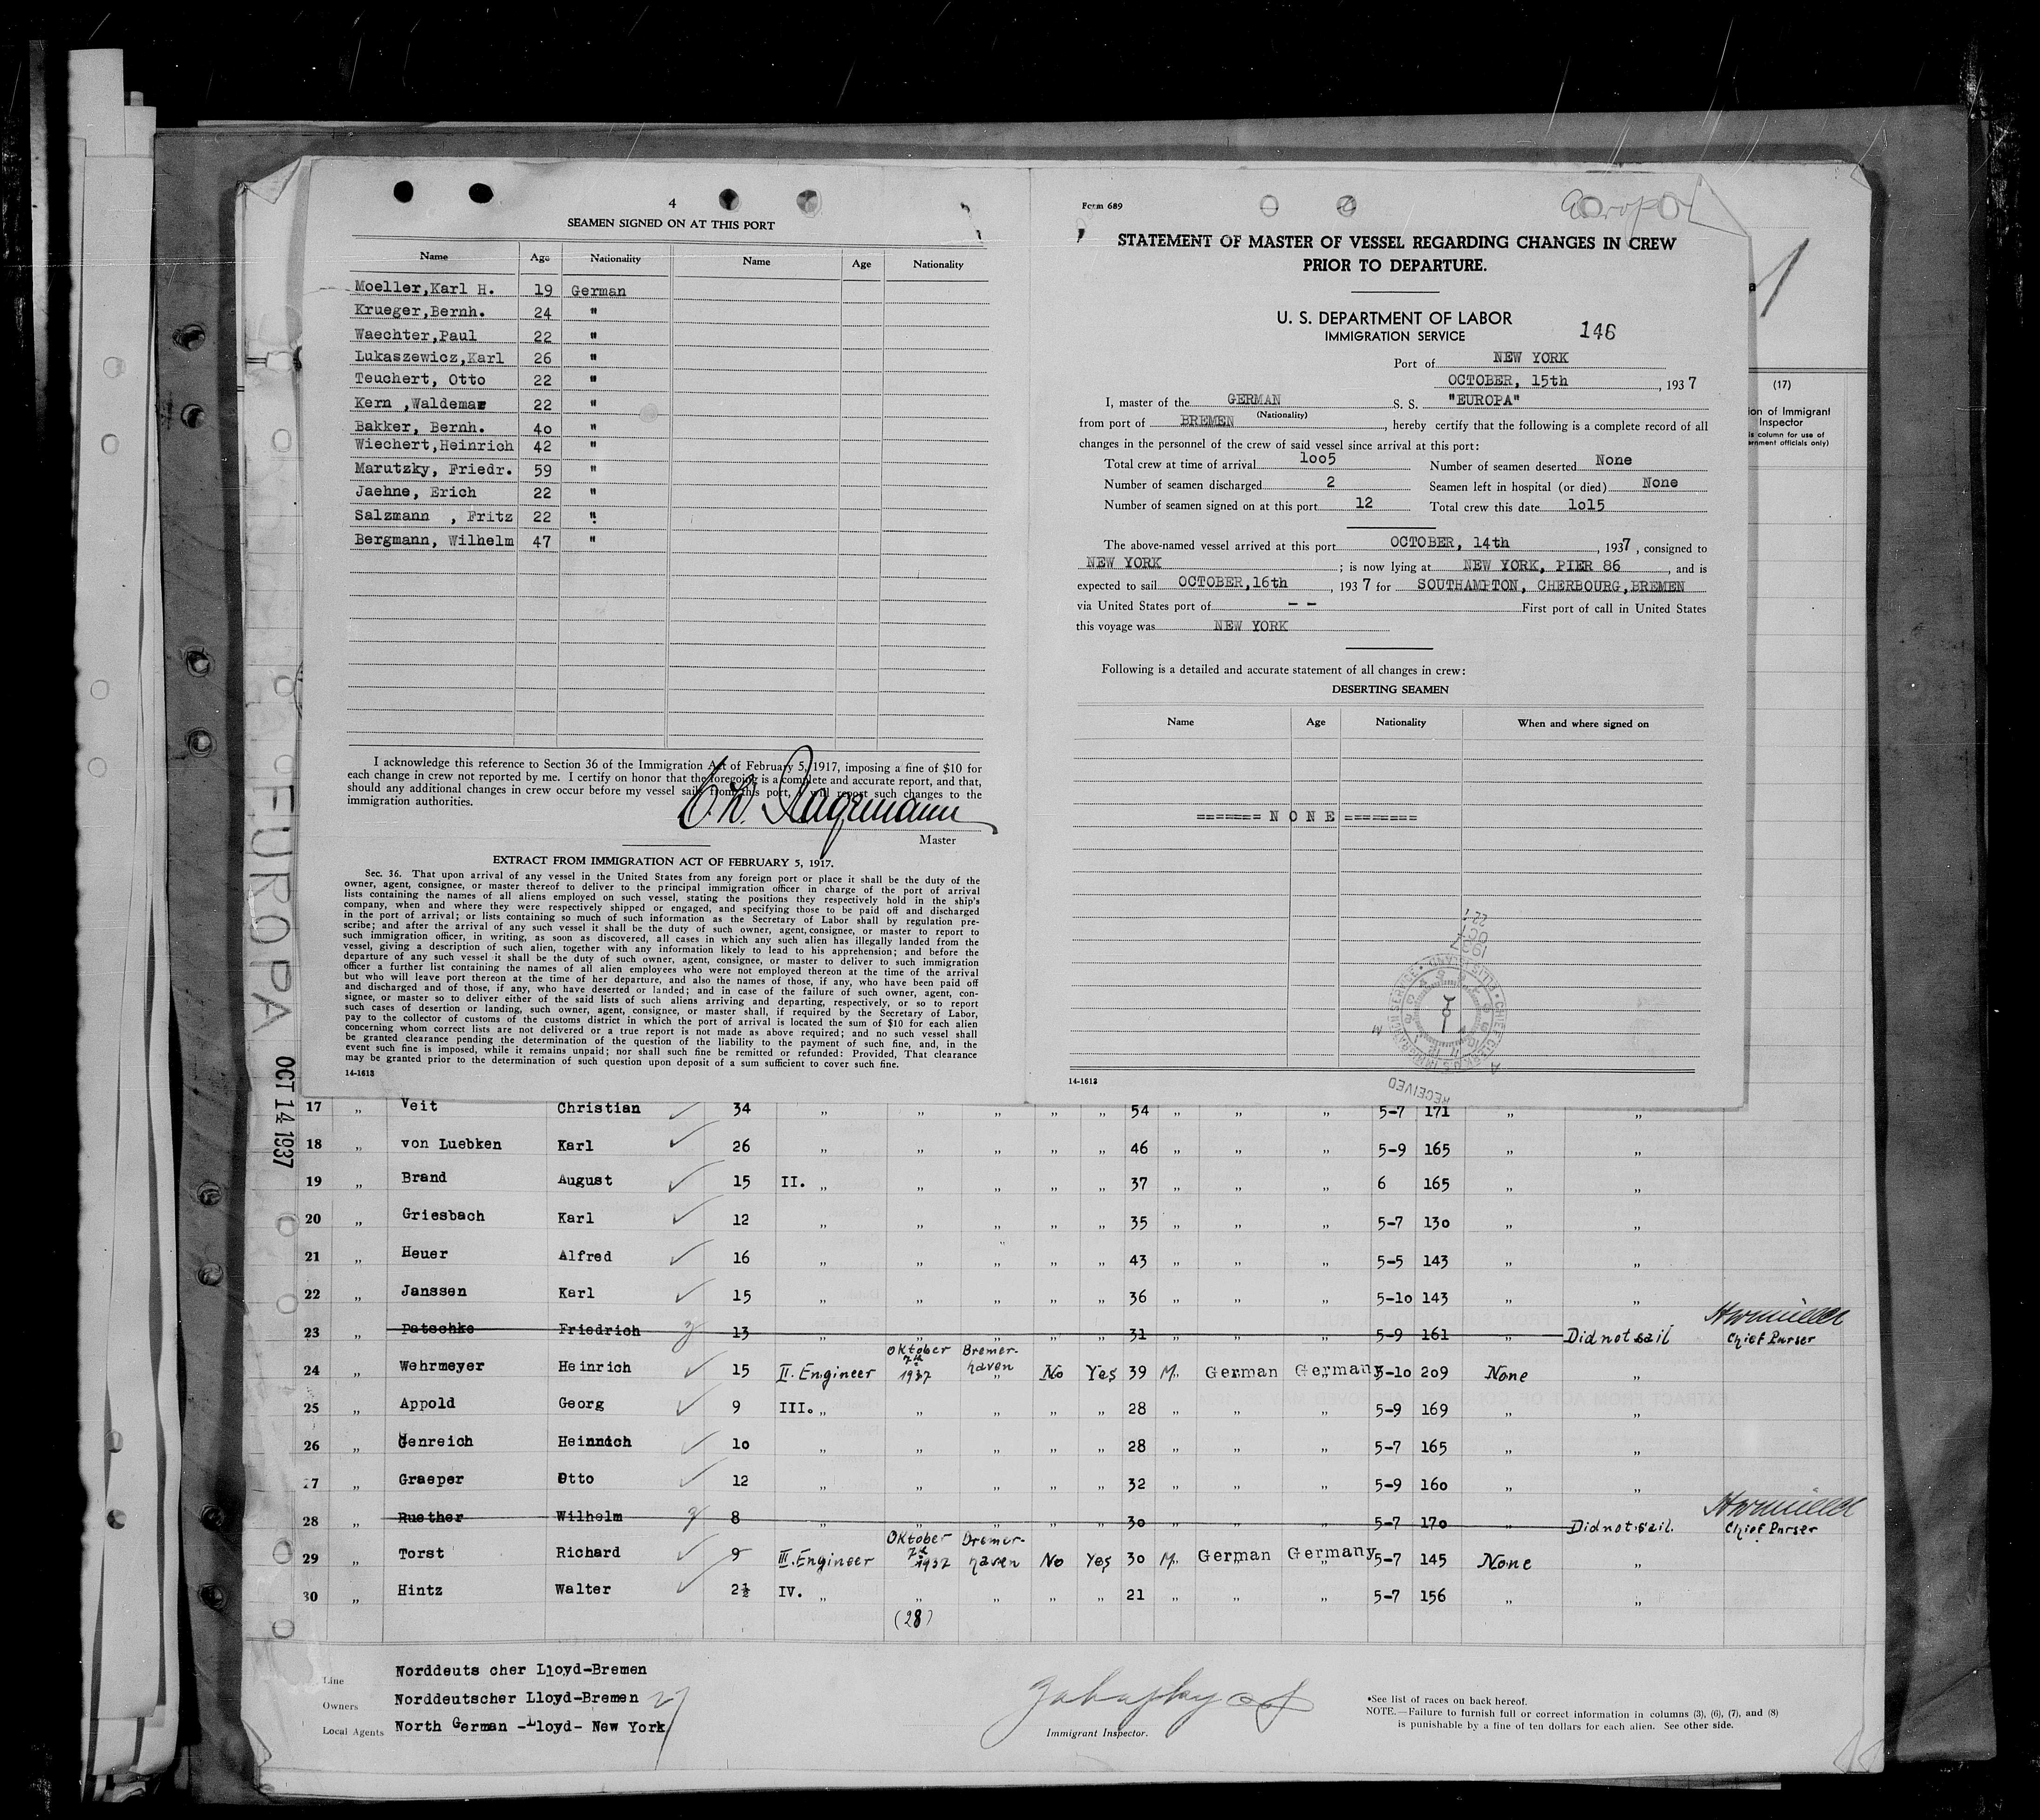 4
SEAMEN SIGNED ON AT THIS PORT
Name Age Nationality Name Age Nationality
Moeller,Karl H. 19 German
Krueger,Bernh. 24 "
Waechter,Paul 22 "
Lukaszewicz,Karl 26 "
Teuchert, Otto 22 "
Kern ,Waldemar 22 "
Bakker, Bernh. 4o "
Wiechert,Heinrich 42 "
Marutzky, Friedr. 59 "
Jaehne, Erich 22 "
Salzmann , Fritz 22 "
Bergmann, Wilhelm 47 "
I acknowledge this reference to Section 36 of the Immigration Act of February 5, 1917, imposing a fine of $10 for
each change in crew not reported by me. I certify on honor that the foregoing is a complete and accurate report, and that,
should any additional changes in crew occur before my vessel sails from this port, I will report such changes to the
immigration authorities.
Master
EXTRACT FROM IMMIGRATION ACT OF FEBRUARY 5, 1917.
Sec. 36. That upon arrival of any vessel in the United States from any foreign port or place it shall be the duty of the
owner, agent, consignee, or master thereof to deliver to the principal immigration officer in charge of the port of arrival
lists containing the names of all aliens employed on such vessel, stating the positions they respectively hold in the ship's
company, when and where they were respectively shipped or engaged, and specifying those to be paid off and discharged
in the port of arrival; or lists containing so much of such information as the Secretary of Labor shall by regulation pre-
scribe; and after the arrival of any such vessel it shall be the duty of such owner, agent, consignee, or master to report to
such immigration officer, in writing, as soon as discovered, all cases in which any such alien has illegally landed from the
vessel, giving a description of such alien, together with any information likely to lead to his apprehension; and before the
departure of any such vessel it shall be the duty of such owner, agent, consignee, or master to deliver to such immigration
officer a further list containing the names of all alien employees who were not employed thereon at the time of the arrival
but who will leave port thereon at the time of her departure, and also the names of those, if any, who have been paid off
and discharged and of those, if any, who have deserted or landed; and in case of the failure of such owner, agent, con-
signee, or master so to deliver either of the said lists of such aliens arriving and departing, respectively, or so to report
such cases of desertion or landing, such owner, agent, consignee, or master shall, if required by the Secretary of Labor,
pay to the collector of customs of the customs district in which the port of arrival is located the sum of $10 for each alien
concerning whom correct lists are not delivered or a true report is not made as above required; and no such vessel shall
be granted clearance pending the determination of the question of the liability to the payment of such fine, and, in the
event such fine is imposed, while it remains unpaid; nor shall such fine be remitted or refunded: Provided, That clearance
may be granted prior to the determination of such question upon deposit of a sum sufficient to cover such fine.
14-1613
Form 689
Europa
STATEMENT OF MASTER OF VESSEL REGARDING CHANGES IN CREW
PRIOR TO DEPARTURE.
U. S. DEPARTMENT OF LABOR
IMMIGRATION SERVICE 146
Port of NEW YORK
OCTOBER, 15th , 1937
I, master of the GERMAN S. S. "EUROPA"
(Nationality)
from port of BREMEN , hereby certify that the following is a complete record of all
changes in the personnel of the crew of said vessel since arrival at this port:
Total crew at time of arrival 1oo5 Number of seamen deserted None
Number of seamen discharged 2 Seamen left in hospital (or died) None
Number of seamen signed on at this port 12 Total crew this date 1o15
The above-named vessel arrived at this port OCTOBER, 14th , 1937 , consigned to
NEW YORK ; is now lying at NEW YORK, PIER 86 , and is
expected to sail OCTOBER,16th , 1937 for SOUTHAMPTON, CHERBOURG,BREMEN
via United States port of - - First port of call in United States
this voyage was NEW YORK
Following is a detailed and accurate statement of all changes in crew:
DESERTING SEAMEN
Name Age Nationality When and where signed on
======= N O N E ========
1937 OCT 22
RECEIVED
14-1613
(17)
ion of Immigrant
Inspector
is column for use of
ernment officials only)
EUROPA OCT 14 1937
17 „ Veit Christian 34 „ „ „ „ „ 54 „ „ „ 5-7 171 „ „
18 „ von Luebken Karl 26 „ „ „ „ „ 46 „ „ „ 5-9 165 „ „
19 „ Brand August 15 II. „ „ „ „ „ 37 „ „ „ 6 165 „ „
20 „ Griesbach Karl 12 „ „ „ „ „ 35 „ „ „ 5-7 13o „ „
21 „ Heuer Alfred 16 „ „ „ „ „ 43 „ „ „ 5-5 143 „ „
22 „ Janssen Karl 15 „ „ „ „ „ 36 „ „ „ 5-1o 143 „ „
23 „ Patschke Friedrich 13 „ „ „ „ „ 31 „ „ „ 5-9 161 „ Did not sail Chief Purser
24 „ Wehrmeyer Heinrich 15 II. Engineer Oktober 7th 1937 Bremerhaven No Yes 39 M. German Germany 5-1o 209 None „
25 „ Appold Georg 9 III. „ „ „ „ „ 28 „ „ „ 5-9 169 „ „
26 „ Genreich Heinrich 1o „ „ „ „ „ 28 „ „ „ 5-7 165 „ „
27 „ Graeper Otto 12 „ „ „ „ „ 32 „ „ „ 5-9 16o „ „
28 „ Ruether Wilhelm 8 „ „ „ „ „ 3o „ „ „ 5-7 17o „ Did not sail. Chief Purser
29 „ Torst Richard 9 III. Engineer Oktober 7th 1937 Bremerhaven No Yes 30 M. German Germany 5-7 145 None „
30 „ Hintz Walter 2½ IV. „ „ „ „ „ 21 „ „ „ 5-7 156 „ „
(28)
Line Norddeuts cher Lloyd-Bremen
Owners Norddeutscher Lloyd-Bremen 27
Local Agents North German -Lloyd- New York
Immigrant Inspector.
*See list of races on back hereof.
NOTE.—Failure to furnish full or correct information in columns (3), (6), (7), and (8)
is punishable by a fine of ten dollars for each alien. See other side.